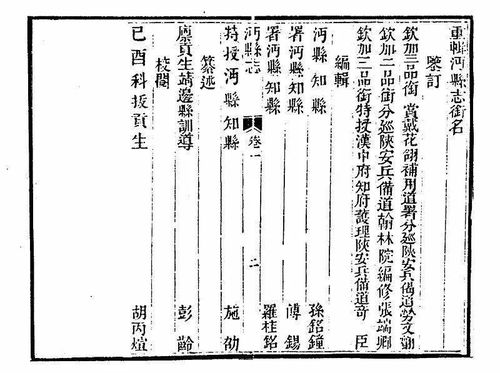 重輯沔縣志銜名
鑒訂
欽加三品銜賞戴花翎補用道署分巡陝安兵備道勞文翽
欽加二品銜分巡陝安兵備道翰林院編修張端卿
欽加三品銜特授漢中府知府護理陝安兵備道奇臣
編輯
沔縣知縣孫銘鐘
署沔縣知縣傅錫
署沔縣知縣羅桂銘
沔縣志 卷一 二
特授沔縣知縣施劭
纂述
廩貢生靖邊縣訓導彭齡
校閱
己酉科拔貢生胡丙煊